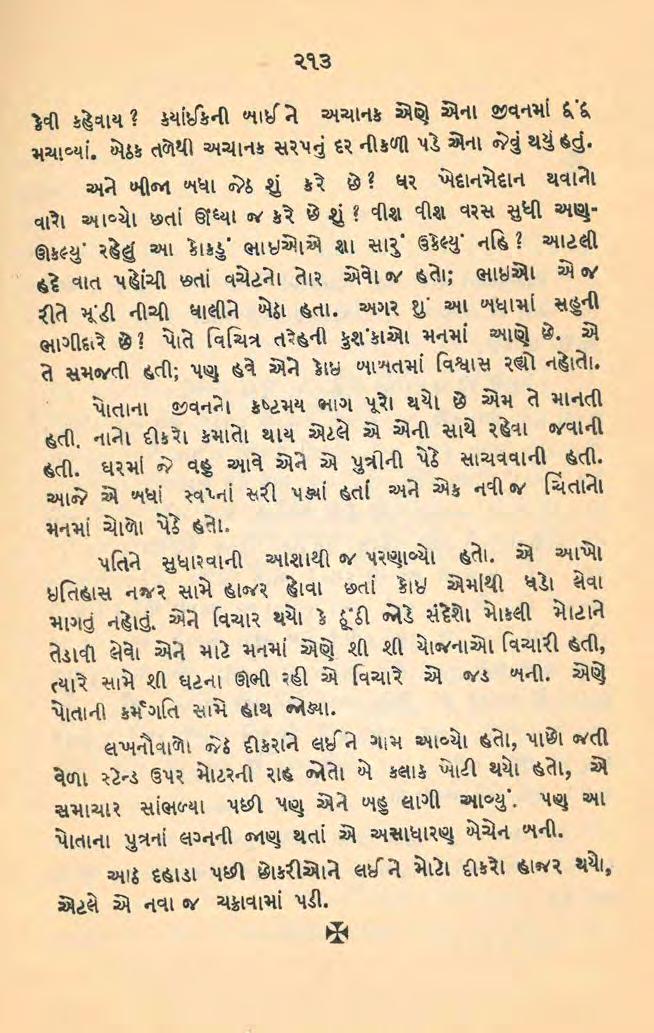 ૨૧૩
કેવી કહેવાય ? કયાંઈકની બાઈ ને અચાનક એણે એના જીવનમાં દ્વંદ્વ
મચાવ્યાં. બેઠક તળેથી અચાનક સરપનું દર નીકળી પડે એના જેવું થયું હતું.
અને બીજા બધા જેઠ શું કરે છે ? ઘર ખેદાનમેદાન થવાનો
વારો આવ્યો છતાં ઊંધ્યા જ કરે છે શું ? વીશ વીશ વરસ સુધી અણ-
ઊકલ્યું રહેલું આ કોકડું ભાઇઓએ શા સારું ઉકેલ્યું નહિ ? આટલી
હદે વાત પહોંચી છતાં વચેટનો તોર એવો જ હતો; ભાઇઓ એ જ
રીતે મૂંડી નીચી ઘાલીને બેઠા હતા. અગર શું આ બધામાં સહુની
ભાગીદારે છે ? પોતે વિચિત્ર તરેહની કુશંકાઓ મનમાં આણે છે. એ
તે સમજતી હતી; પણ હવે એને કોઇ બાબતમાં વિશ્વાસ રહ્યો નહોતો.
પોતાના જીવનનો કષ્ટમય ભાગ પૂરો થયો છે એમ તે માનતી
હતી. નાનો દીકરો કમાતો થાય એટલે એ એની સાથે રહેવા જવાની
હતી. ઘરમાં જે વહુ આવે એને એ પુત્રીની પેઠે સાચવવાની હતી.
આજે એ બધાં સ્વપ્નાં સરી પડ્યાં હતાં અને એક નવી જ ચિંતાનો
મનમાં ચોળો પેઠે હતો.
પતિને સુધારવાની આશાથી જ પરણાવ્યો હતો. એ આખો
ઇતિહાસ નજર સામે હાજર હોવા છતાં કોઇ એમાંથી ધડો લેવા
માગતું નહોતું. એને વિચાર થયો કે હૂંડી જોડે સંદેશો મોકલી મોટાને
તેડાવી લેવો એને માટે મનમાં એણે શી શી યોજનાઓ વિચારી હતી,
ત્યારે સામે શી ઘટના ઊભી રહી એ વિચારે એ જડ બની. એણે
પોતાની કર્મગતિ સામે હાથ જોડ્યા.
લખનૌવાળો જેઠ દીકરાને લઈ ને ગામ આવ્યો હતો, પાછો જતી
વેળા સ્ટેન્ડ ઉપર મોટરની રાહ જોતો બે કલાક ખોટી થયો હતો, એ
સમાચાર સાંભળ્યા પછી પણ એને બહુ લાગી આવ્યું. પણ આ
પોતાના પુત્રનાં લગ્નની જાણ થતાં એ અસાધારણ બેચેન બની.
આઠ દહાડા પછી છોકરીઓને લઈ ને મોટો દીકરો હાજર થયો,
એટલે એ નવા જ ચક્રાવામાં પડી.